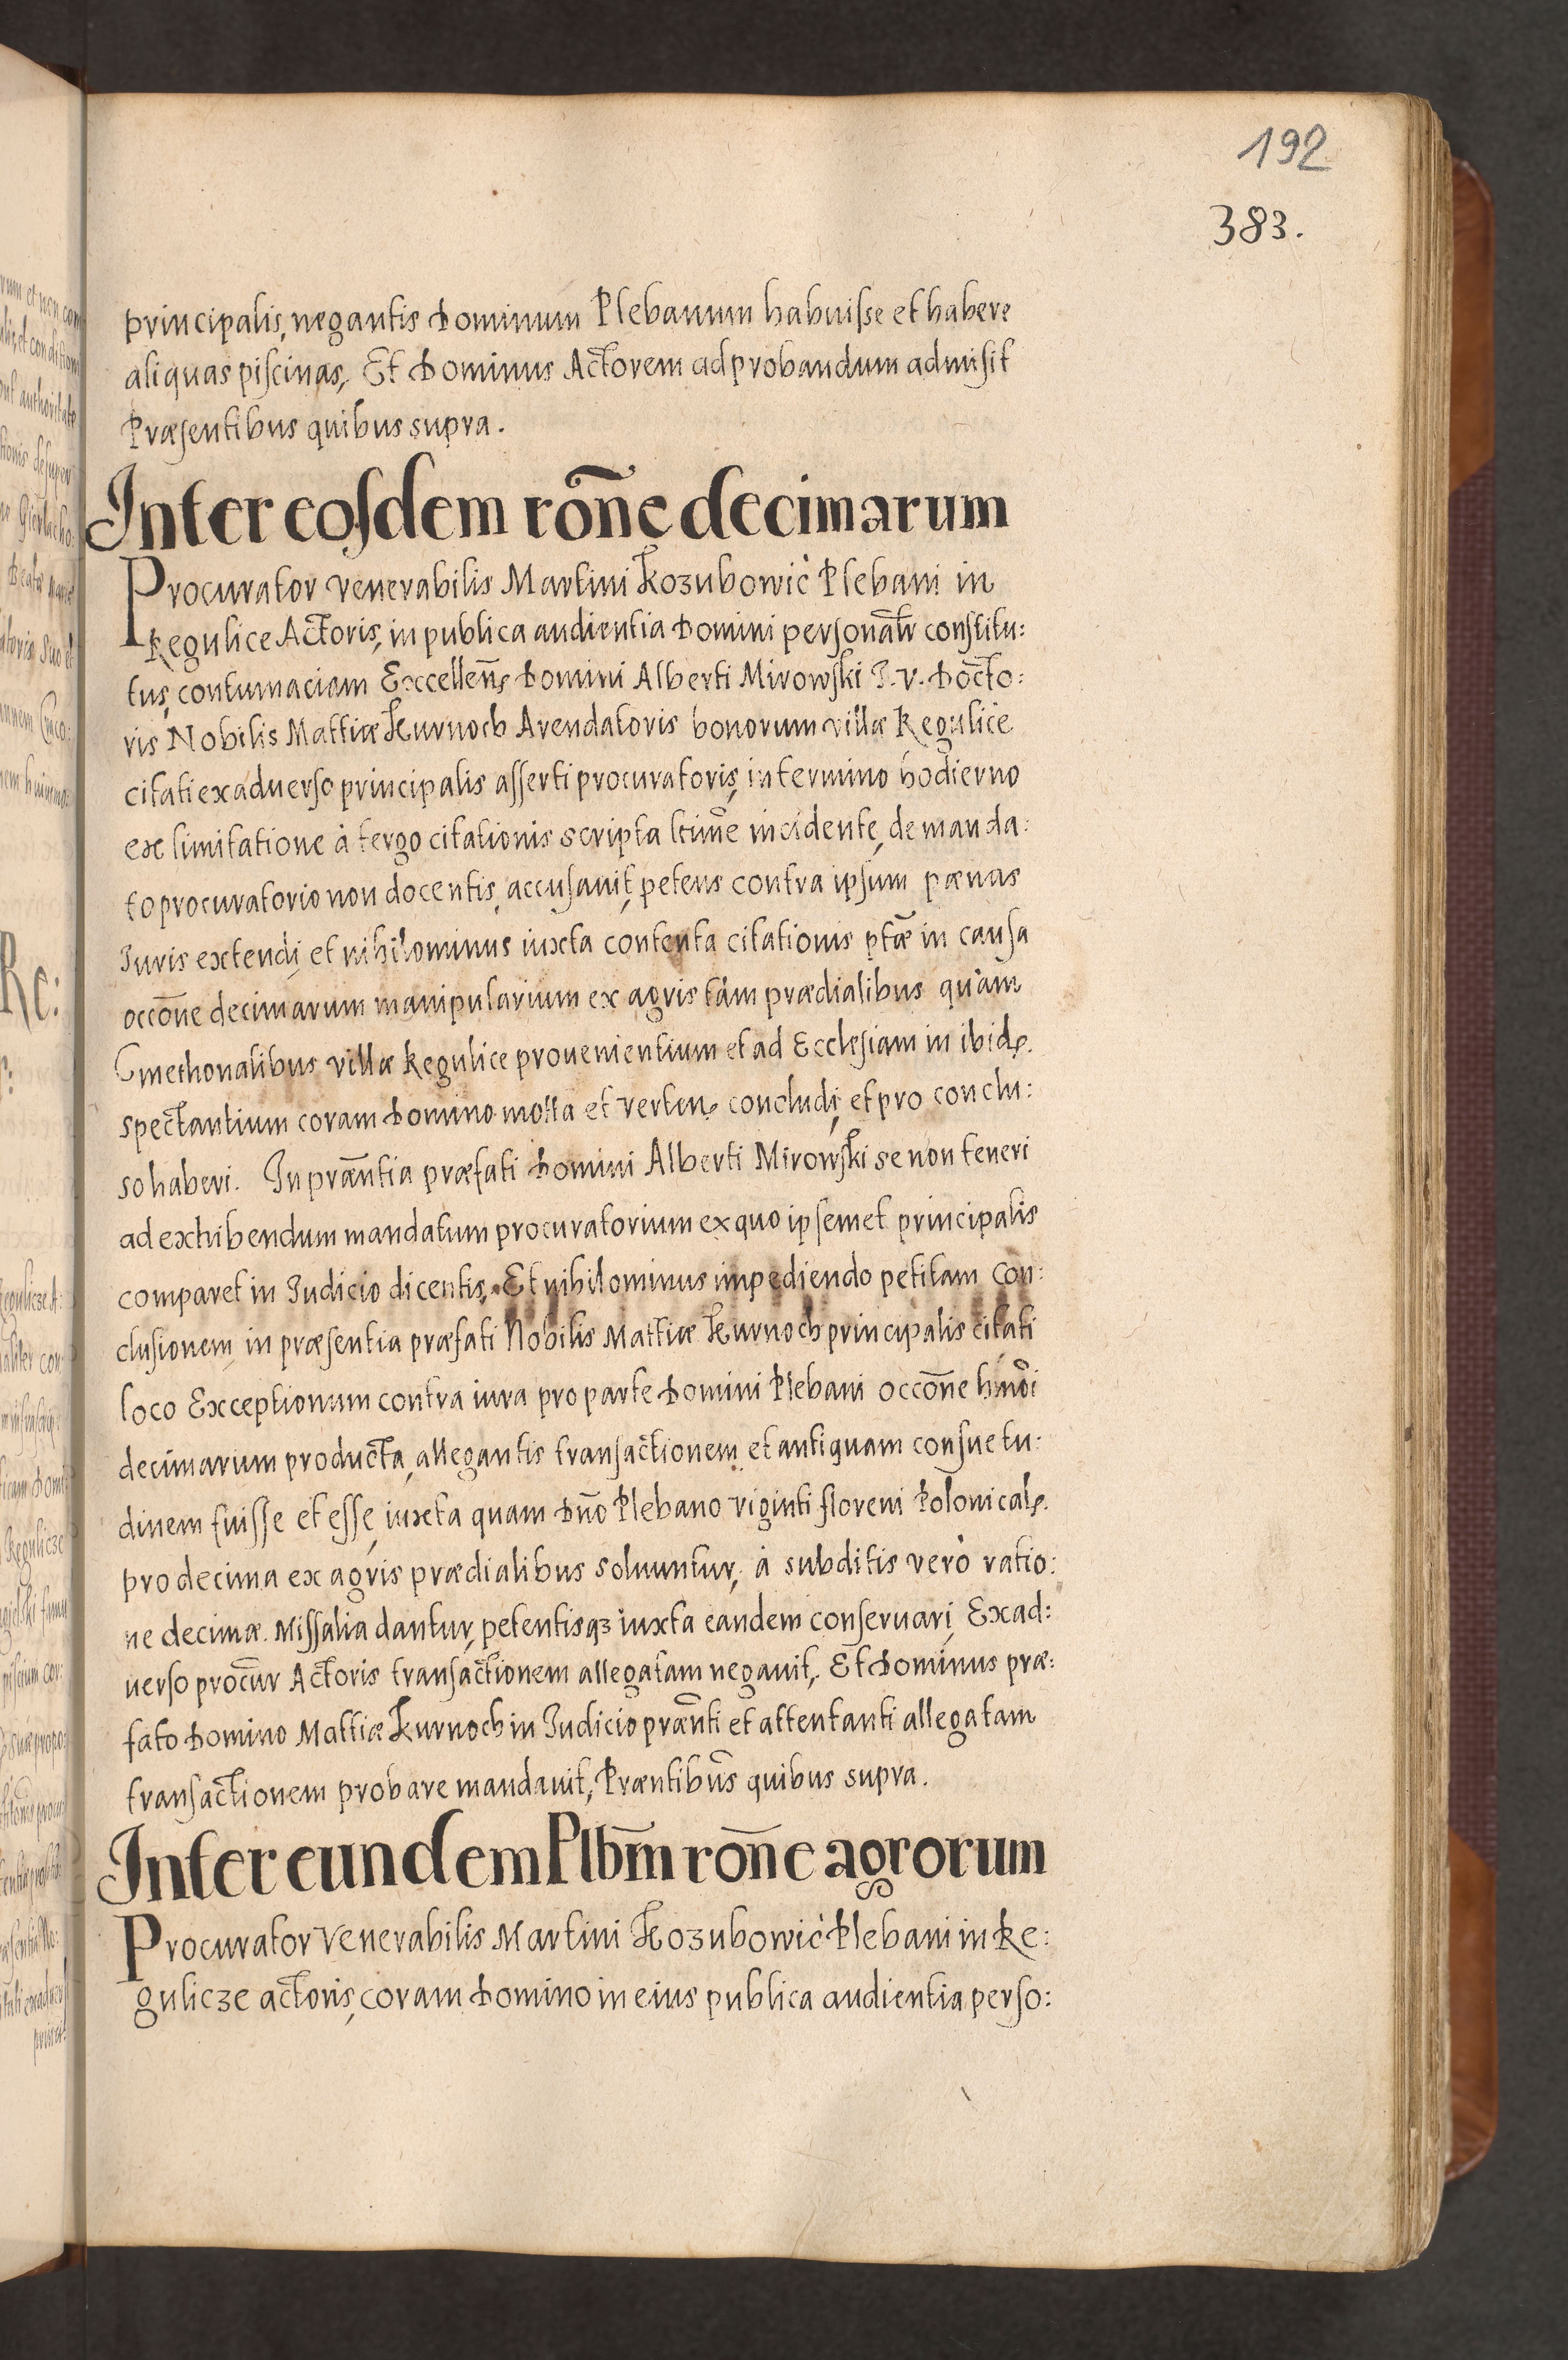 192
383.
principalis, negantis Dominum Plebanum habuisse et habere
aliquas piscinas, Et Dominus Actorem ad probandum admisit
Præsentibus quibus supra.
Inter eosdem rõne decimarum
Procurator venerabilis Martini Kozubowic Plebani in
Regulice Actoris, in publica audientia Domini personalr constitu:
tus, contumaciam Excellen̄ Domini Alberti Mirowski J.V. Docto:
ris Nobilis Mattiæ Kurnoch Arendatoris bonorum villæ Regulice
citati ex aduerso principalis asserti procuratoris, in termino hodierno
ex limitatione à tergo citationis scripta ltimẽ incidente, de manda:
to procuratorio non docentis, accusauit, petens contra ipsum pænas
Iuris extendi, et nihilominus iuxta contenta citationis ptæ in causa
occõne decimarum manipularium ex agris tàm prædialibus quàm
Cmethonalibus villæ Regulice prouenientium et ad Ecclesiam in ibid.
spectantium coram Domino mota et verten. concludi, et pro conclu:
so haberi. In prãntia præfati Domini Alberti Mirowski se non teneri
ad exhibendum mandatum procuratorium ex quo ipsemet principalis
comparet in Iudicio dicentis, Et nihilominus impediendo petitam con:
clusionem, in præsentia præfati Nobilis Mattiæ Kurnoch principalis citati
loco Exceptionum contra iura pro parte Domini Plebani occõne hmõi
decimarum producta, allegantis transactionem, et antiquam consuetu:
dinem fuisse et esse, iuxta quam Dño Plebano viginti floreni Polonical.
pro decima ex agris prædialibus soluuntur, à subditis verò ratio:
ne decimæ Missalia dantur, petentisqz iuxta eandem conseruari, Ex ad:
uerso procur̃ Actoris transactionem allegatam negauit, Et Dominus præ:
fato Domino Mattiæ Kurnoch in Iudicio prænti et attentanti allegatam
transactionem probare mandauit, Præntibus quibus supra.
Inter eundem Plbm̃ rõne agrorum
Procurator venerabilis Martini Kozubowic Plebani in Re:
gulicze actoris, coram Domino in eius publica audientia perso: